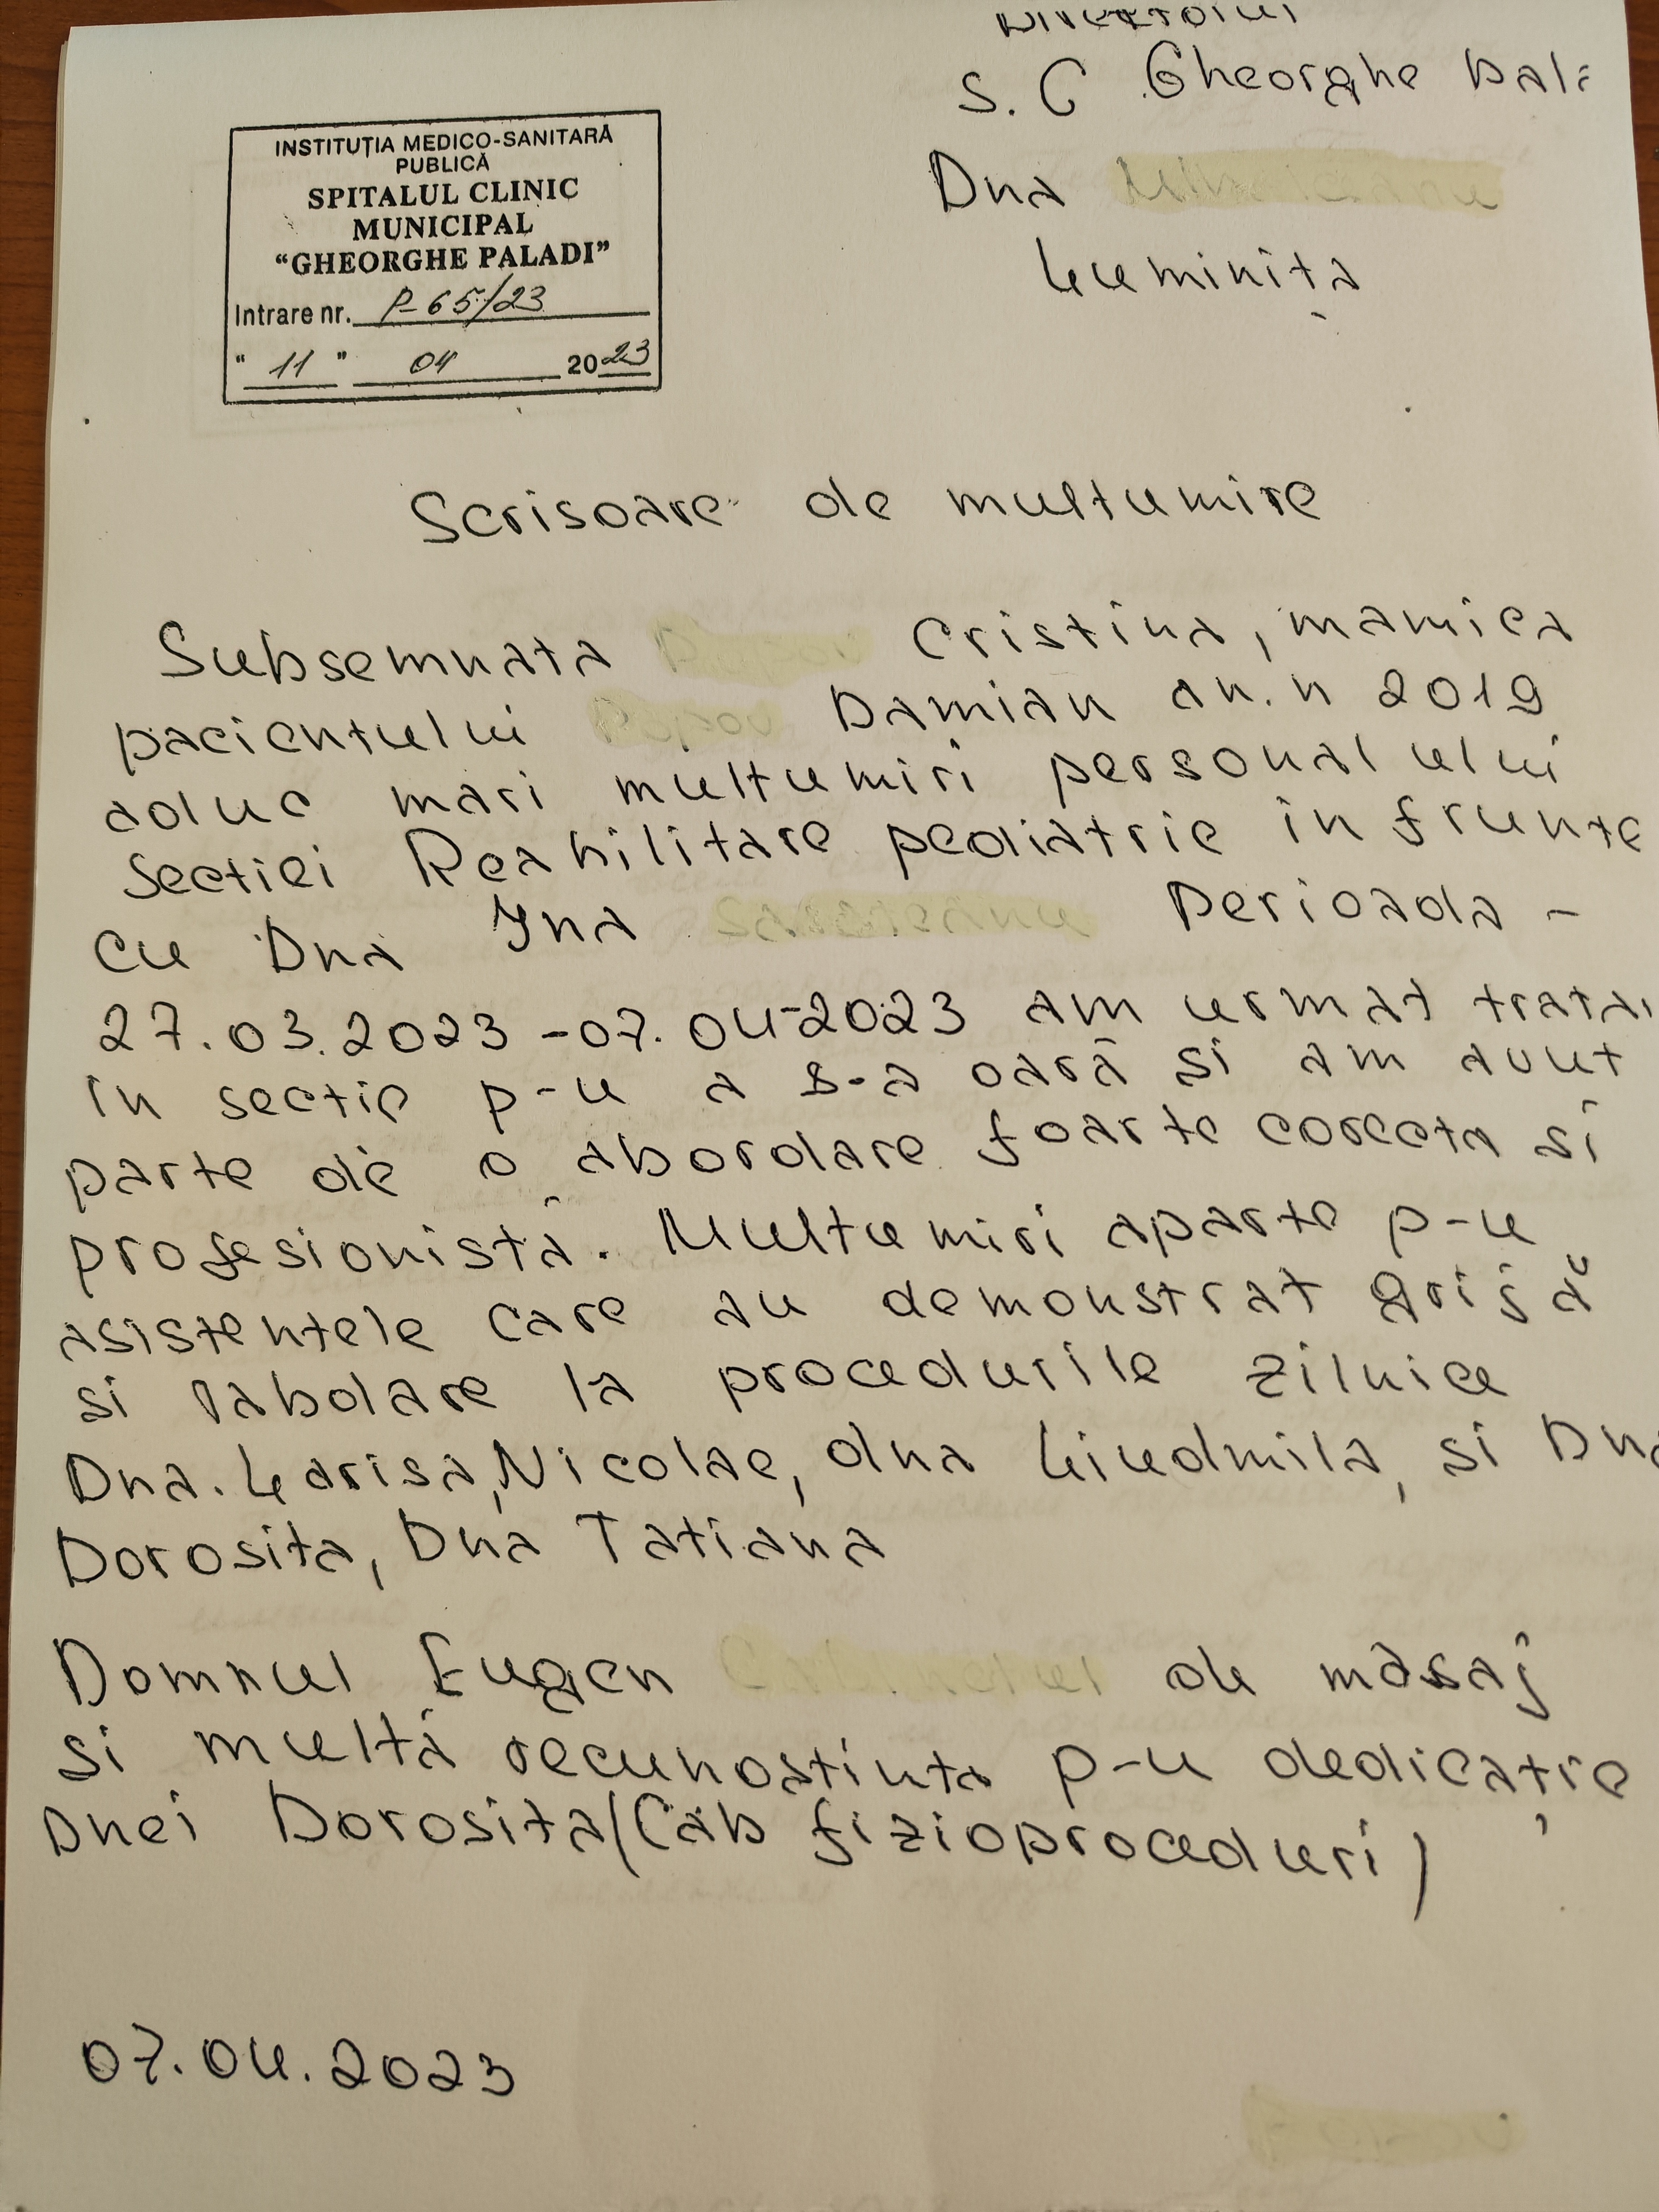 S. C Gheorghe
INSTITUȚIA MEDICO-SANITARĂ
PUBLICĂ
SPITALUL CLINIC
MUNICIPAL
“GHEORGHE PALADI”
Intrare nr. P-65/23
“ 11 ” 04 2023
Dna
Luminița
Scrisoare de multumire
Subsemnata Cristina, mamica
pacientului Damian an. n 2019
aduc mari multumiri personalului
Sectiei Reabilitare pediatrie in frunte
cu Dna Ina Perioada -
27.03.2023 -07.04-2023 am urmat
in sectie p-u a oară si am avut
parte de o abordare foarte corecta si
profesionistă. Multumiri aparte p-u
asistentele care au demonstrat grijă
si rabdare la procedurile zilnice
Dna. Larisa, Nicolae, dna Liudmila, si Dna
Dorosita, Dna Tatiana
Domnul Eugen de masaj
si multă recunostinta p-u dedicație
Dnei Dorosita (Cab fizioproceduri)
07.04.2023